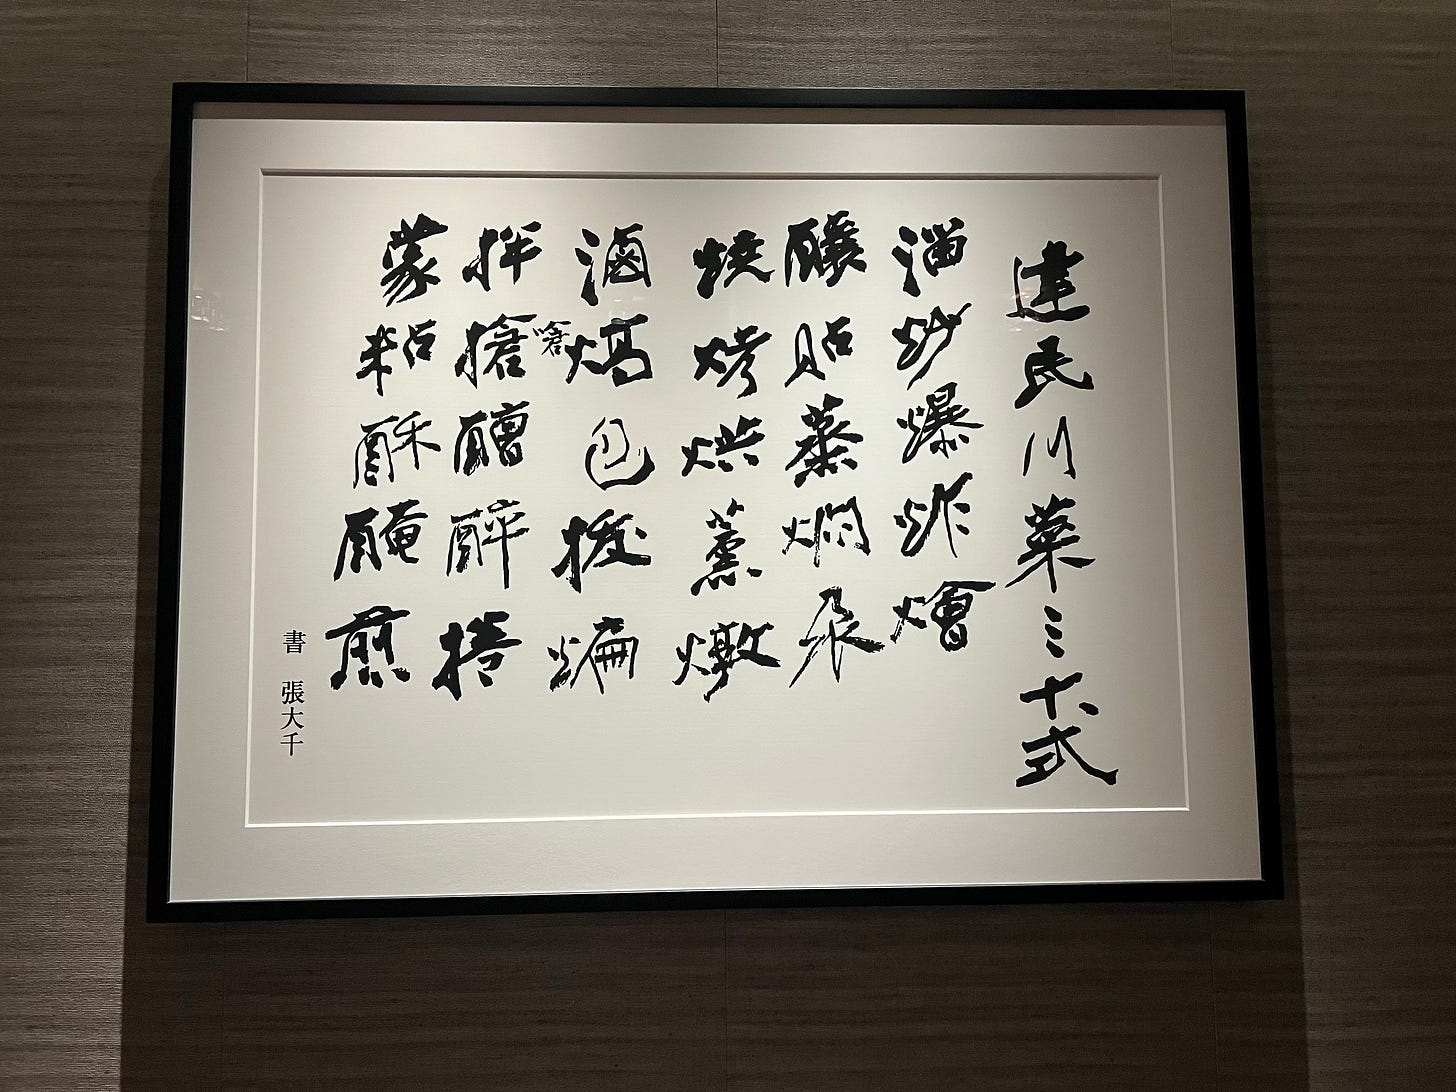 建民川菜三十式
溜炒爆炸燴
釀貼蒸燜汆
燒烤烘薰燉
滷熇包拔煸
嗆
拌搶醩醉捲
蒙粘酥醃煎
書 張大千